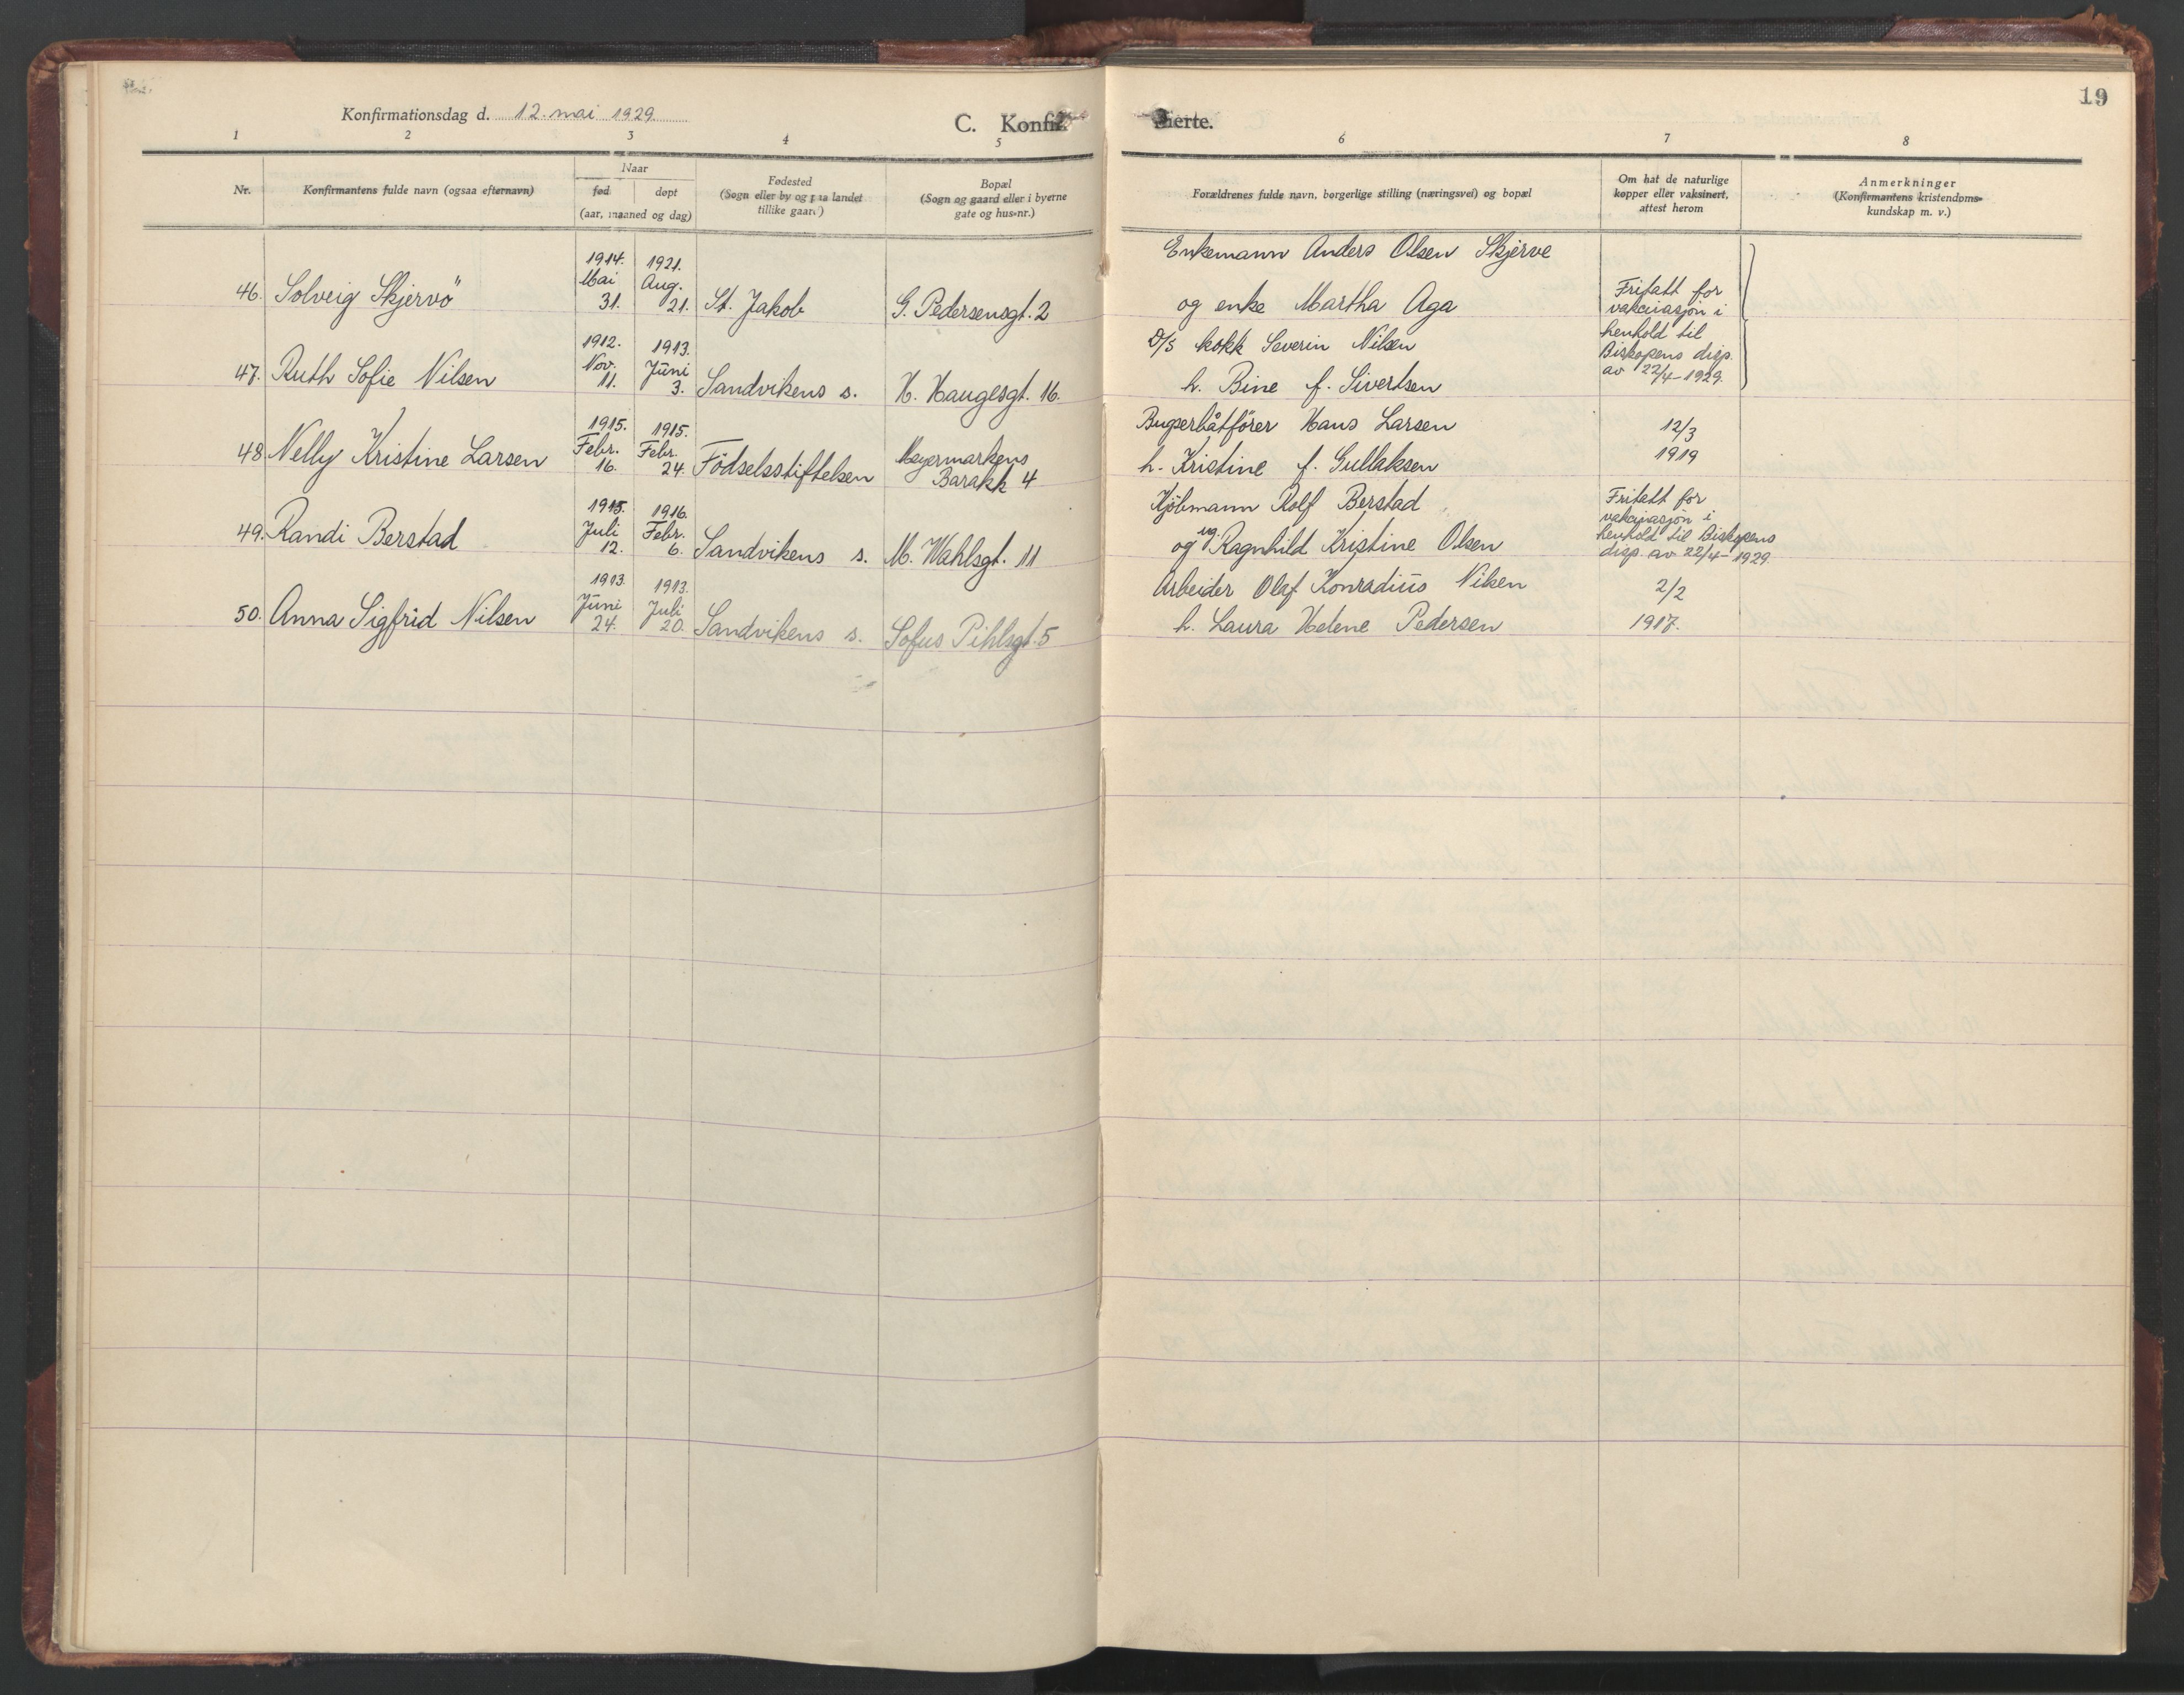 19
Konfirmationsdag d. 12. mai 1929.
C. Konfir- merte.
1 2 3 4 5 6 7 8
Nr.
Konfirmantens fulde navn (ogsaa efternavn)
Naar
fød døpt
(aar, maaned og dag)
Fødested
(Sogn eller by og paa landet
tillike gaard)
Bopæl
(Sogn og gaard eller i byerne
gate og hus-nr.)
Forældrenes fulde navn, borgerlige stilling (næringsvei) og bopæl
Om hat de naturlige
kopper eller vaksinert,
attest herom
Anmerkninger
(Konfirmantens kristendoms-
kundskap m. v.)
46. Solveig Skjervö
1914. Mai 31.
1921. Aug. 21.
St. Jakob
G. Pedersensgt. 2
Enkemann Anders Olsen Skjerve
og enke Martha Aga
Fritatt for
vakcinasjon i
henhold til
Biskopens disp.
av 22/4-1929.
47. Ruth Sofie Nilsen
1912. Nov. 11.
1913. Juni 3.
Sandvikens s.
H. Haugesgt. 16.
D/S kokk Severin Nilsen
h. Bine f. Sivertsen
48. Nelly Kristine Larsen
1915. Febr. 16.
1915. Febr. 24.
Födselsstiftelsen
Meyermarkens
Barakk 4
Bugserbåtförer Hans Larsen
h. Kristine f. Gullaksen
12/3
1919
49. Randi Berstad
1915. Juli 12.
1916. Febr. 6.
Sandvikens s.
M. Wahlsgt. 11
Kjöbmann Rolf Berstad
og ug. Ragnhild Kristine Olsen
Fritatt for
vakcinasjon i
henhold til Biskopens
disp. av 22/4-1929.
50. Anna Sigfrid Nilsen
1913. Juni 24.
1913. Juli 20.
Sandvikens s.
Sofus Pihlsgt. 5
Arbeider Olaf Konradius Nilsen
h. Laura Helene Pedersen
2/2
1917.